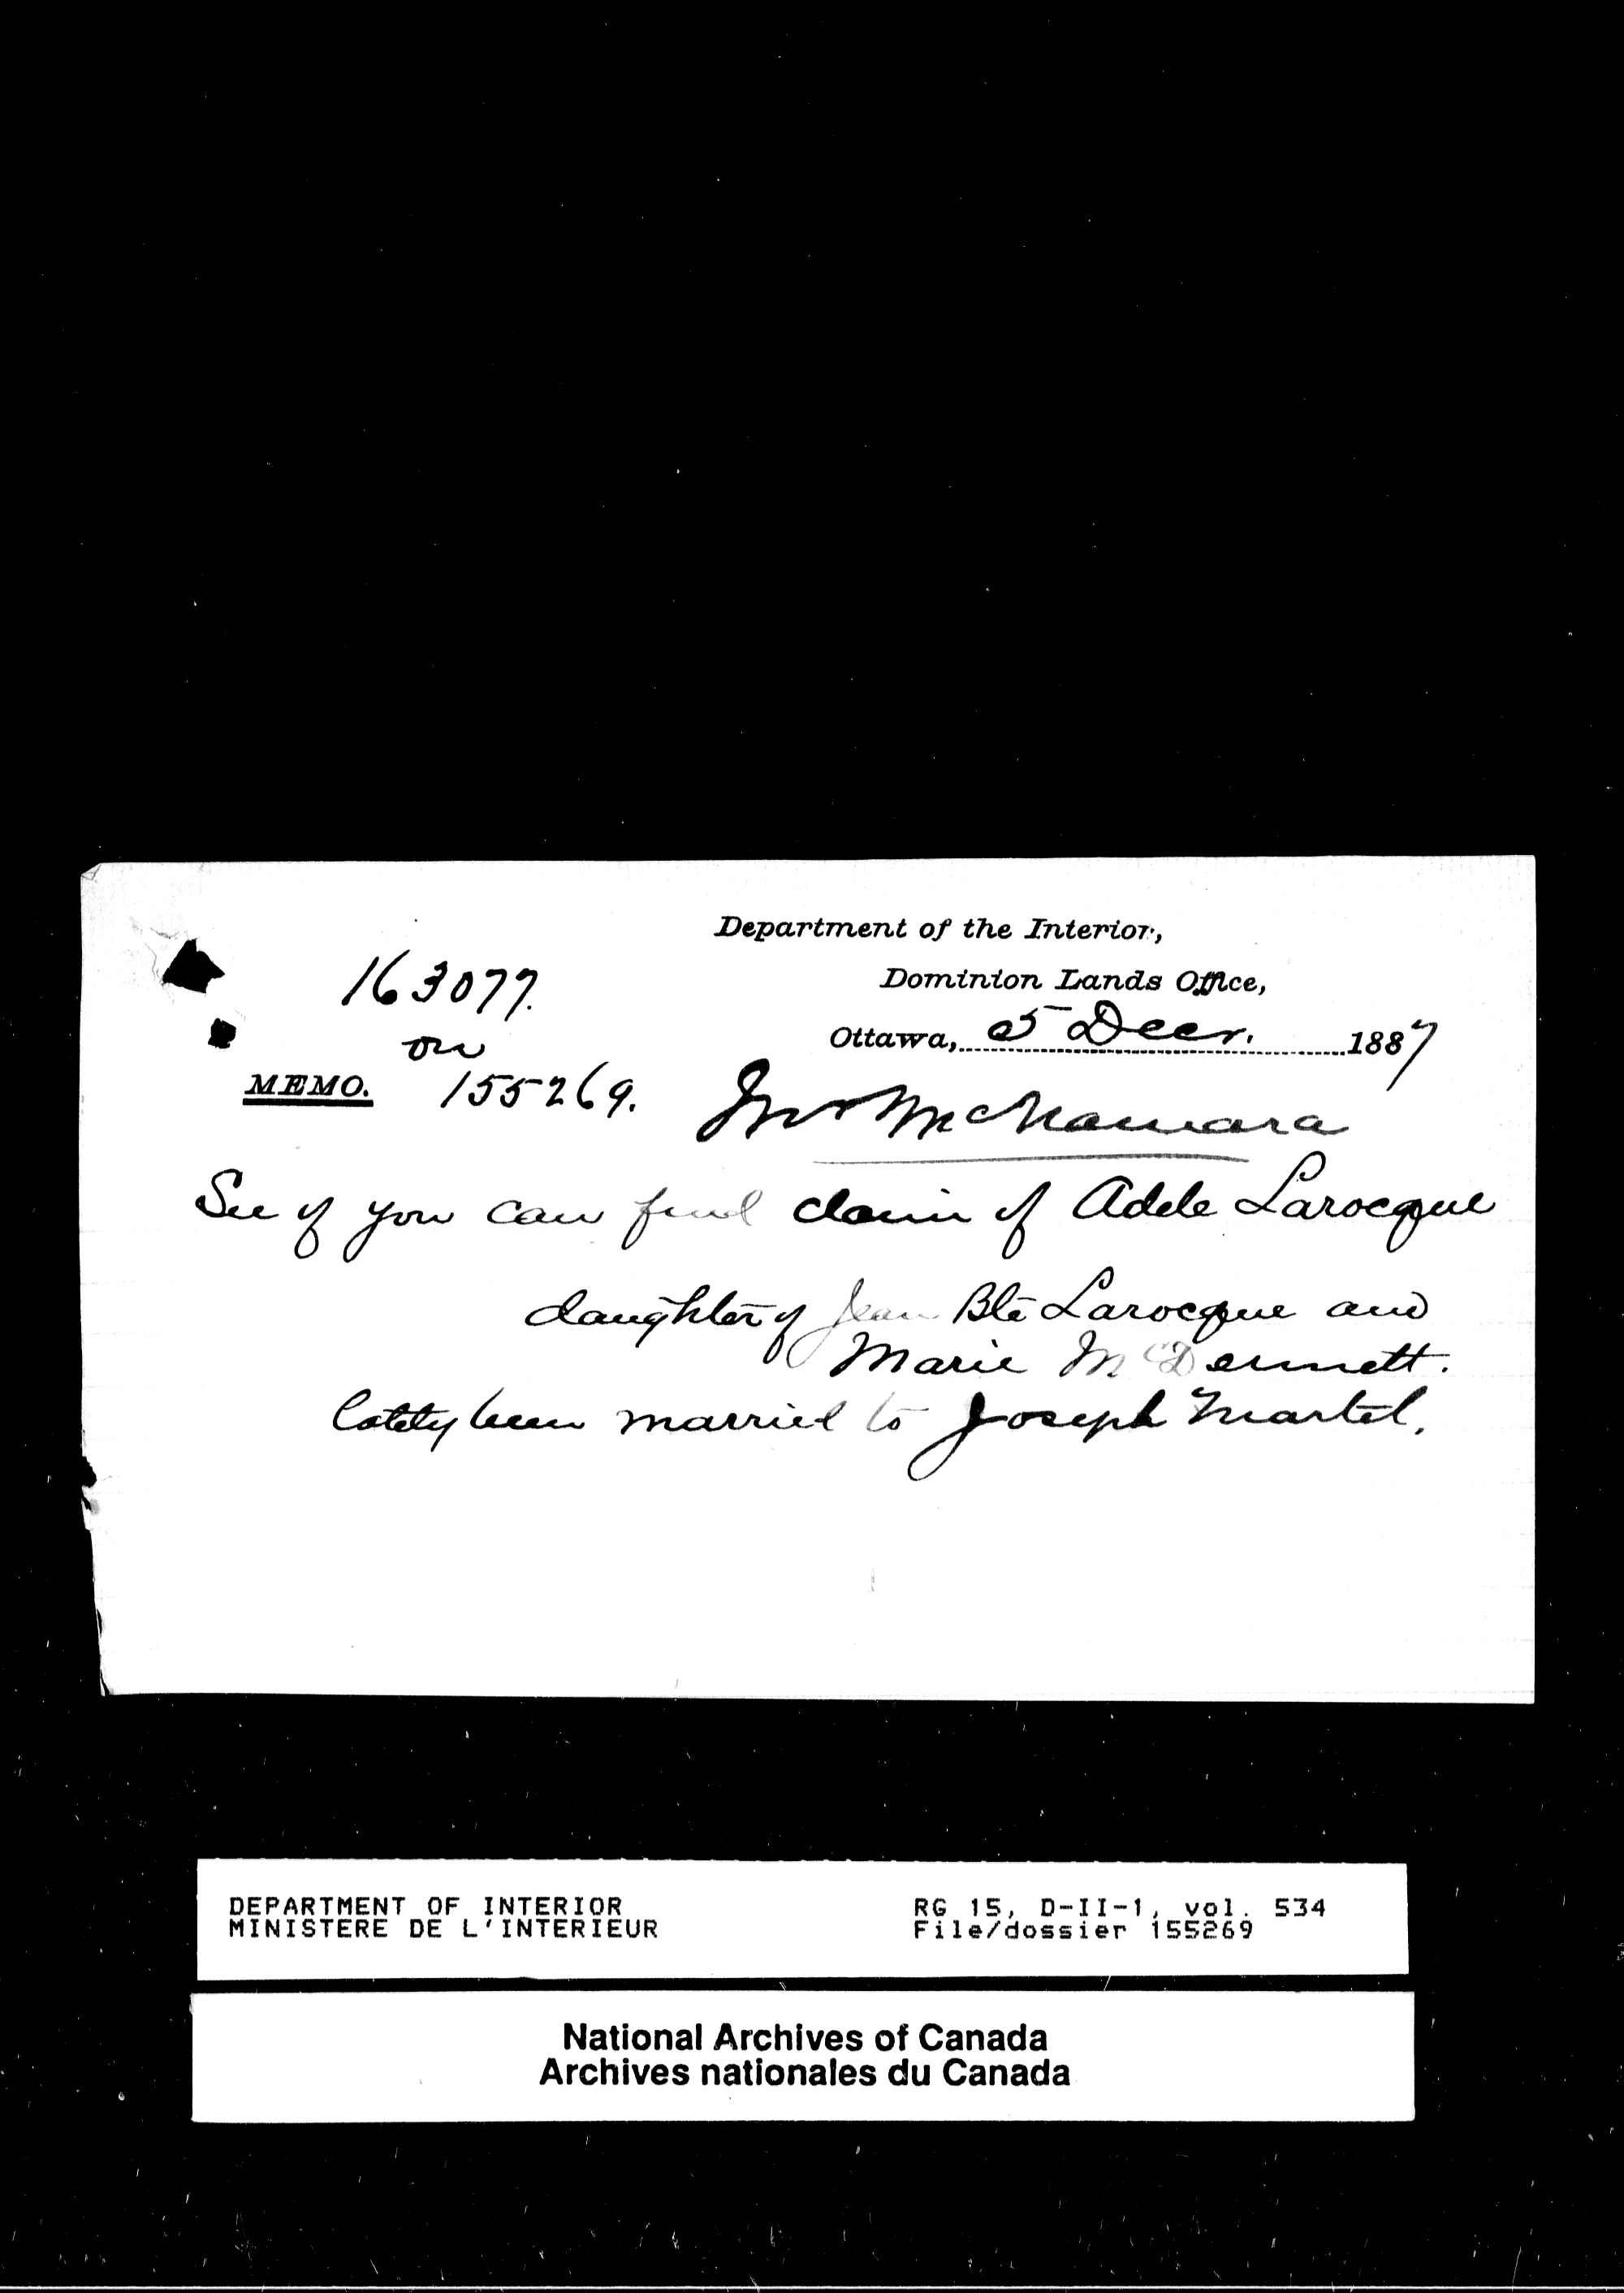 Department of the Interior,
Dominion Lands Office,
Ottawa, 5 Decr. 1887
163077.
on
MEMO. 155269.
Mr McNamara
See if you can find claim of Adele Larocque
daughter of Jean Bte Larocque and
Marie McDermett.
been married to Joseph Martel.
DEPARTMENT OF INTERIOR
MINISTERE DE L'INTERIEUR
RG 15, D-II-1, vol. 534
File/dossier 155269
National Archives of Canada
Archives nationales du Canada